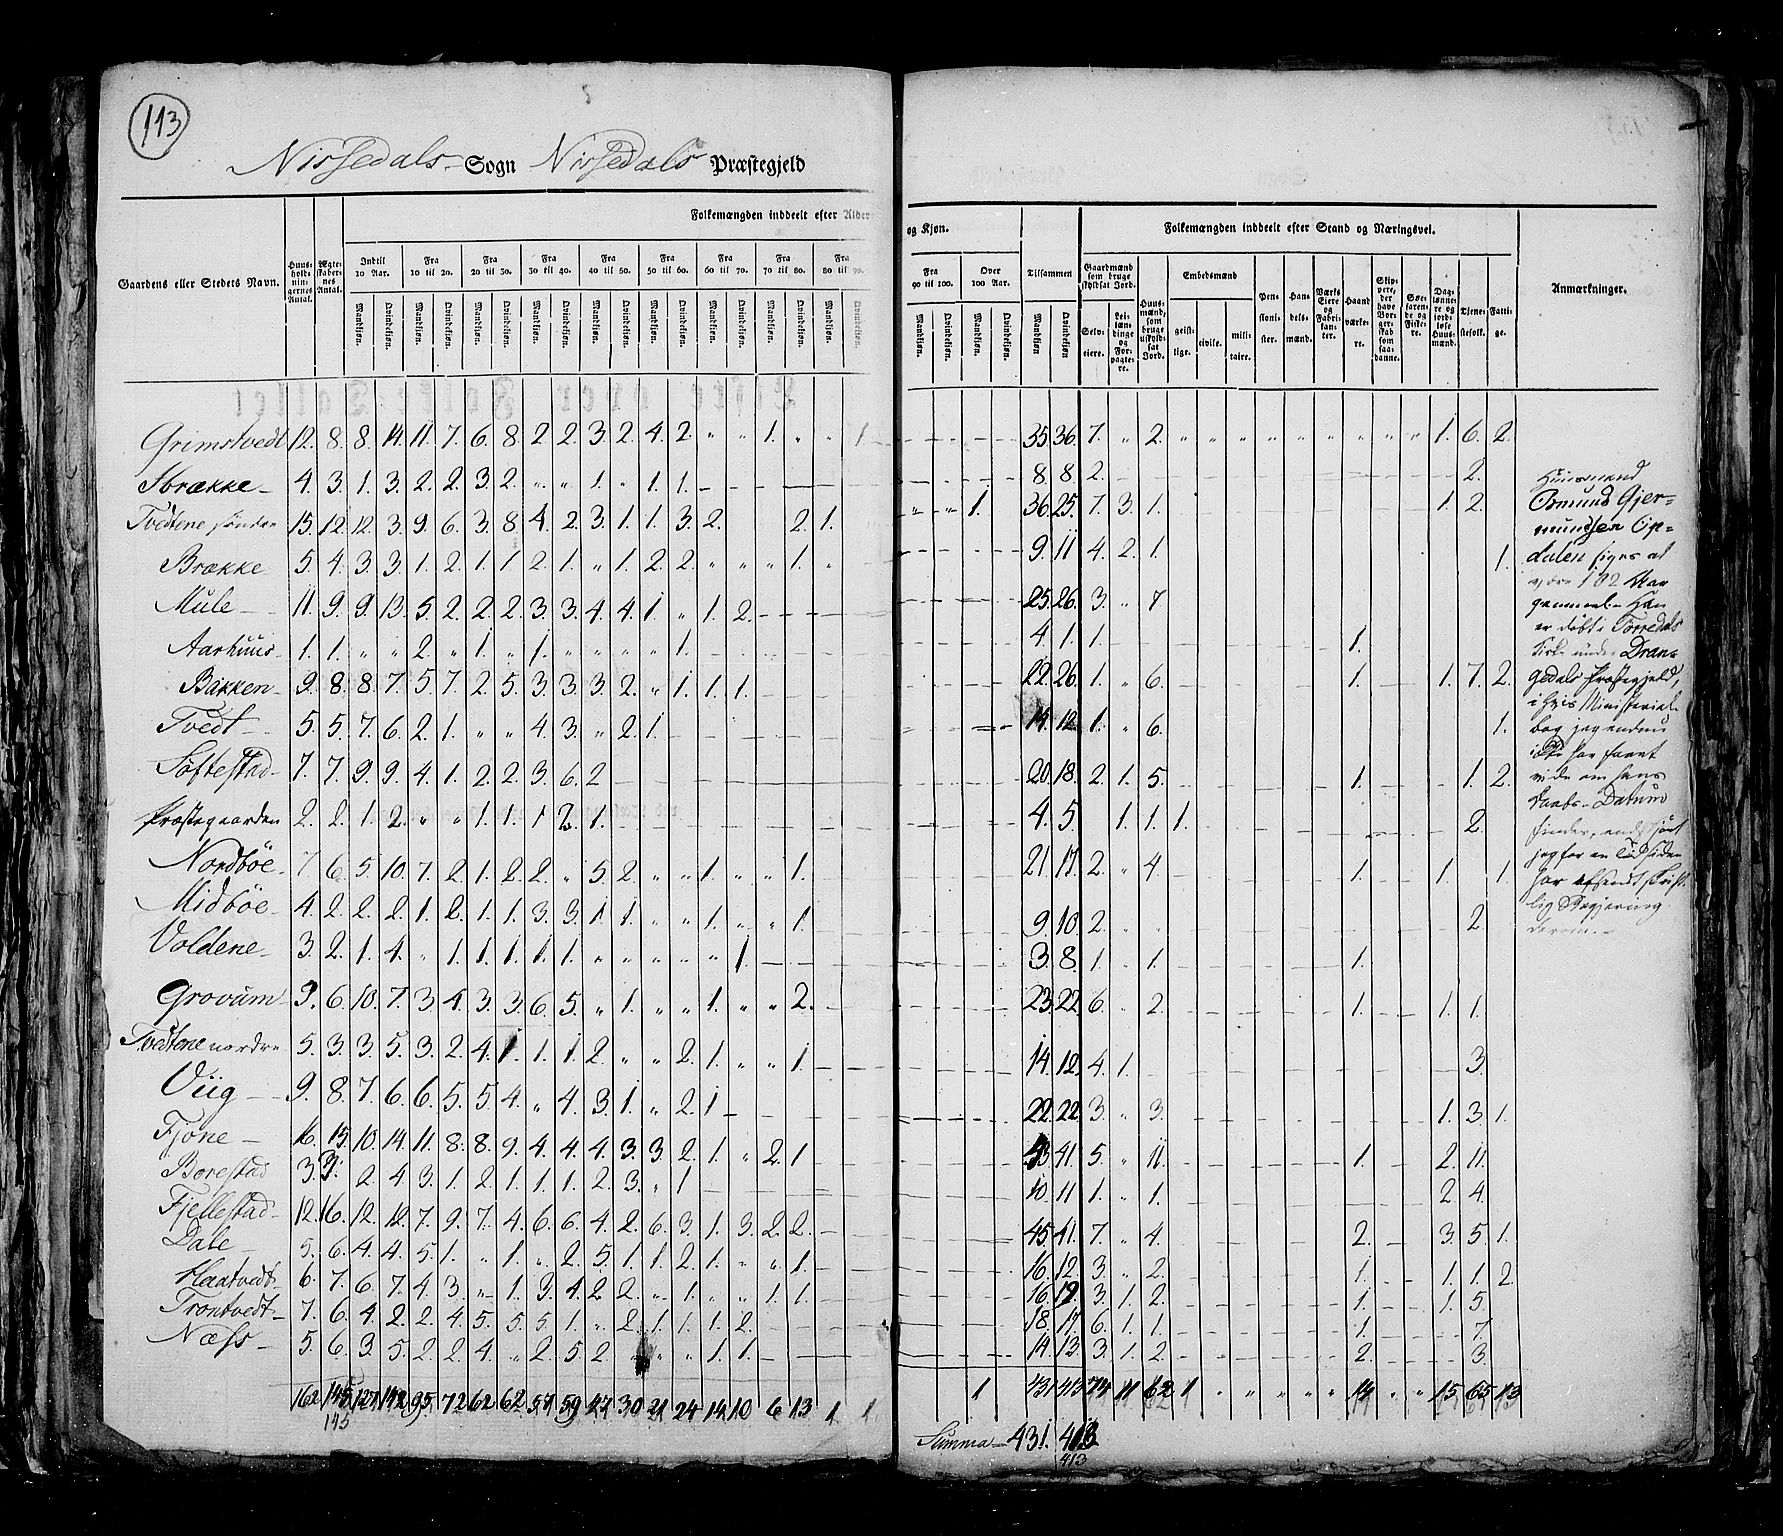 113
Nissedals Sogn Nissedals Præstegjeld
Gaardens eller Stedets Navn.
Huus-holdnin-gernes Antal.
Ægte-skaber-nes Antal.
Folkemængden inddeelt efter Alder og Kjøn.
Indtil 10 Aar. Fra 10 til 20. Fra 20 til 30. Fra 30 til 40. Fra 40 til 50. Fra 50 til 60. Fra 60 til 70. Fra 70 til 80. Fra 80 til 90. Fra 90 til 100. Over 100 Aar. Tilsammen
Mandkjøn. Qvindekjøn.
Folkemængden inddeelt efter Stand og Næringsvei.
Gaardmænd som bruge skyldsat Jord. Selveiere. Leilændinge og Forpagtere.
Huusmænd, som bruge uskyldsat Jord.
Embedsmænd geistlige. civile. militaire.
Pensionister. Handelsmænd. Værks Eiere og Fabrikanter. Haandværkere. Skippere, der have Borgerskab som saadanne. Søefarende og Fiskere. Daglønnere og jordløse Huusmænd. Tjenestefolk. Fattige.
Anmærkninger.
Grimstvedt 12. 8. 8. 14. 11. 7. 6. 8. 2 2. 3. 2. 4. 2. " " 1. " " 1 35. 36. 7. " 2. " " " " " " " " " " 1. 6. 2.
Strække 4. 3. 1. 3. 2. 2. 3. 2. " " 1. " 1. 1. 8. 8. 2. 2.
Tvedtene søndre 15. 12. 12. 3. 9. 6. 3. 8 4. 2. 3. 1. 1. 3. 2. 2. 1. " " 1. 36. 25. 7. 3. 1. 1. 2.
Brække 5. 4. 3. 3. 1. 2. 1. 1 2. 1. " 1. 2. 2. " " " 1. " 9. 11 4. 2. 1. 1.
Mule 11. 9. 9. 13. 5. 2. 2. 2. 3. 3. 4. 4. 1 " 1. 2. 25. 26. 3. " 7
Aarhuus 1. 1. " " 2. " 1. " 1. " " " " 1. 4. 1. 1. 1.
Bakken 9. 8. 8. 7. 5. 7. 2. 5. 3. 3. 3. 2. " 1. 1. 1. 22. 26. 1. " 6. 1. 1. 7. 2.
Tvedt 5. 5. 7. 6. 2. 1. " " 4. 3. " 2. 1. 14. 12. 1. " 6. 1.
Søftestad 7. 7. 9. 9. 4. 1. 2. 2. 3. 6. 2 20. 18. 2. 1. 5. 1. 1. 2.
Præstegaarden 2. 2. 1. 2. " " 1. 1. 1 2. 1. 4. 5. 1. 1. 1. 2.
Nordbøe 7. 6. 5. 10. 7. 2. 1. 2. 2. " 5. 2. " " 1. " " 1. 21. 17. 2. " 4. 1. 1. 1.
Midbøe 4. 2. 2. 2. 1. 2. 1. 1. 3. 3. 1. 1. " " 1. " " 1. 9. 10. 2. 2.
Voldene 3. 2. 1. 4. " 1. 1. 1. 1. 1. " " " " " 1. 3. 8. 1. " 1. 1.
Grovum 9. 6. 10. 7. 3. 4. 3. 3. 6. 5. " 1. " " 1. " " 2. 23. 22. 6. " 2. 1. 1. 1.
Tvedtene nordre 5. 3. 3. 5. 3. 2. 4. 1. 1. 1. 2. " " 2. 1. " " 1. 14. 12. 4. 1. 3.
Viig 9. 8. 7. 6. 6. 5. 5. 4. " 4. 3. 1. " 2. 1 22. 22. 3. " 3. 1. 3. 1.
Fjone 16. 15. 10. 14. 11. 8. 8. 9. 4. 4. 4. 3. 3. 2. 1. " 2. 1 43 41. 5. " 11. 1. 2. 11.
Borestad 3. 3. 2. 4 3. 1. 2. 1. 1. 1. 2. 3. " 1 10. 11 1. " 1. 2. 4.
Fjellestad 12. 16. 12. 12. 7. 9. 7. 4. 6. 6. 4. 2. 6. 3. 1. 3. 2. 2. 45. 41. 7. " 4. 2. 3. 5. 1.
Dale 5. 6. 4. 4. 5. 1. " 1. " 2. 5. 1. 1. 2. 1. " " 1. 16. 12. 3. " 2. 1. 1. 1. 2
Haatvedt 6. 7. 6. 7. 4. 3. " 1. 3. 4. 2 2. " 1. " " 1. 1. 16. 19. 3. 1. 2. 1. 1. 5.
Trontvedt 7. 6. 4. 2. 2. 4. 5. 5. 5. 1. " 2. 1. 1. 1. 2. 18. 17. 6. 1. 1. 1. 7.
Næss 5. 6. 3. 5. 2. 2. 4. " 2. 5. 2. " " " 1. 1. 14. 13. 3. 1. 2. 2. 3.
162 145 127 142 95. 72 62 62 57 59 47 30 21 24 14 10 6 13 1 1. 1 431 413 74 11 62 1 " " " " " 14 " " 15 65 13
145
Summa 431. 413
413
Huusmand
Osmund Gjer-
mundsen Op-
dalen siges at
være 102 Aar
gammel. Han
er døbt i Törredals
Kirke under Dran-
gedals Præstegjeld,
i hvis Ministerial-
bog jeg endnu
ikke har faaet
vide om hans
Daabs-Datum
findes, endskjønt
jeg for en Tid siden
har afsendt skrift-
lig Begjæring
derom.